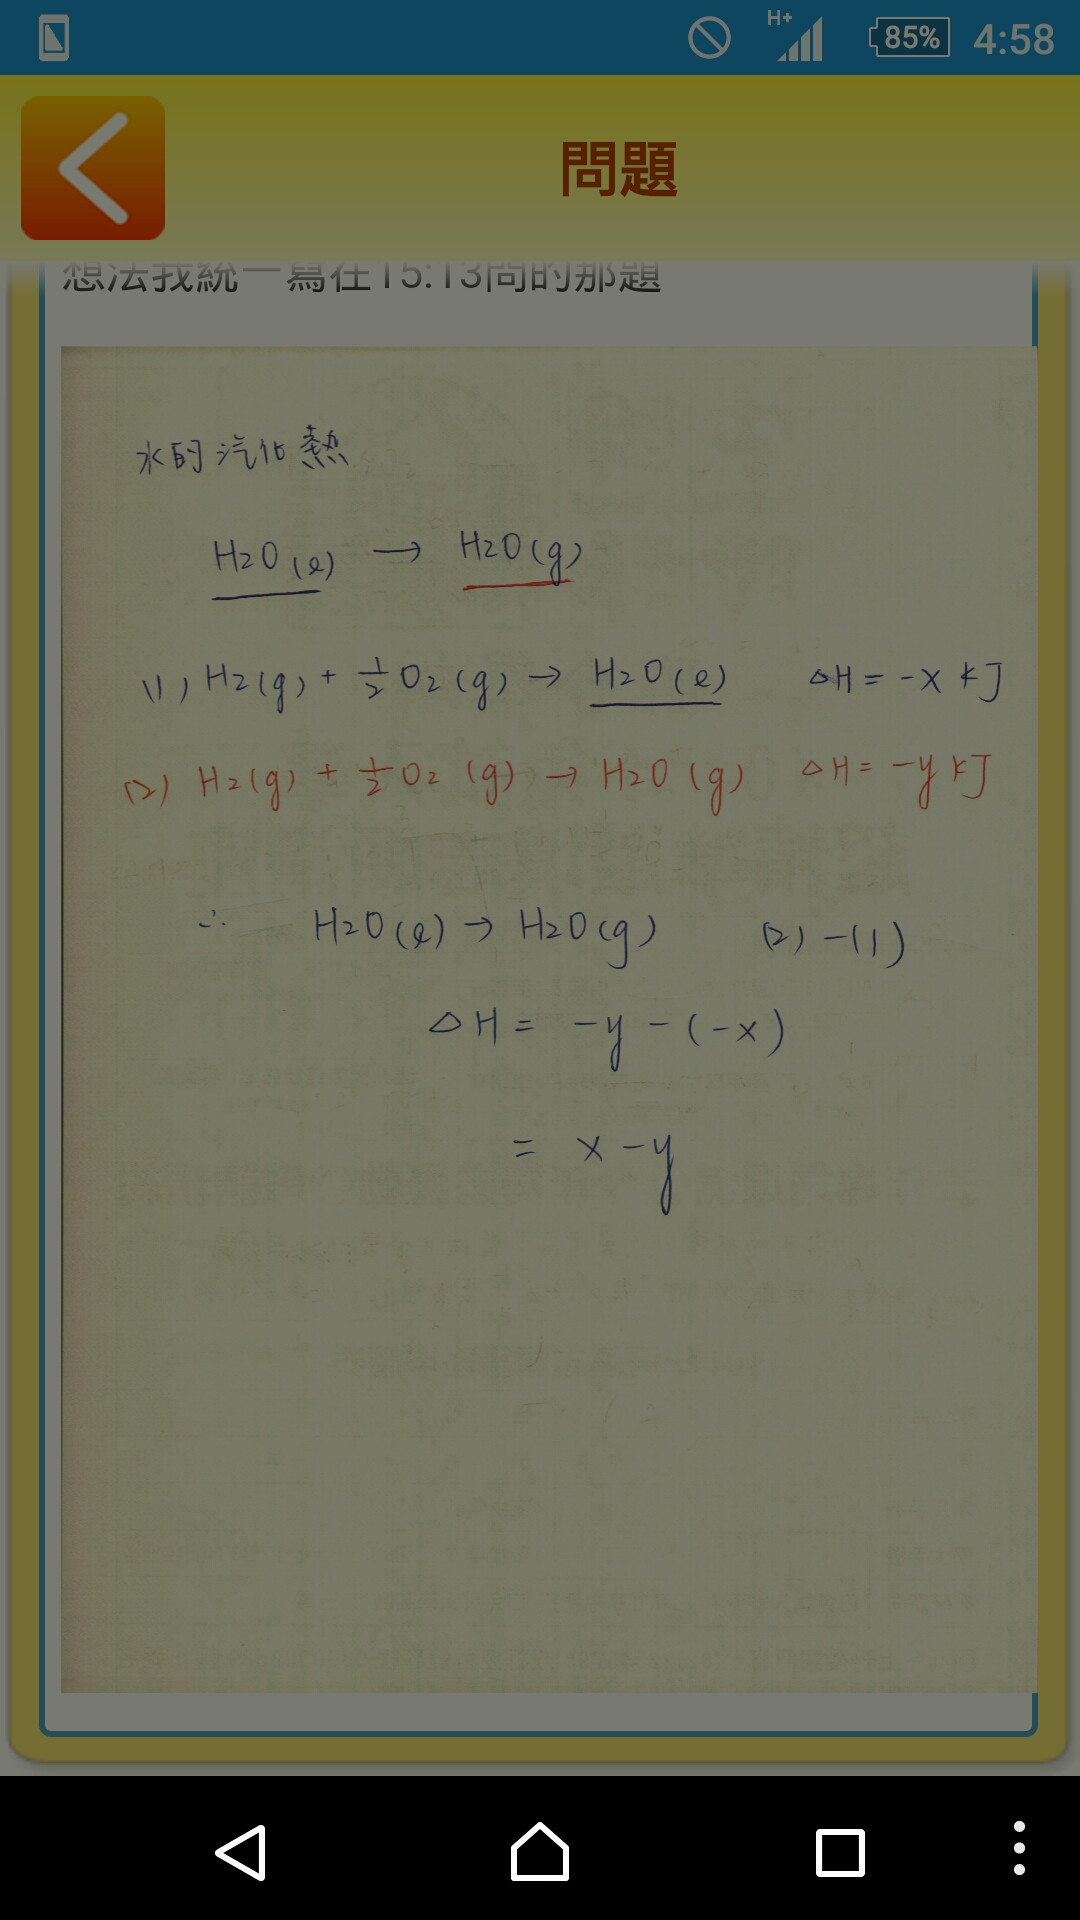 H+ 85% 4:58
問題
想法我統一寫在15:13問的那題
水的汽化熱
H2O(l) → H2O(g)
(1) H2(g) + 1/2 O2(g) → H2O(l) △H = -x kJ
(2) H2(g) + 1/2 O2(g) → H2O(g) △H = -y kJ
∴ H2O(l) → H2O(g) (2) -(1)
△H = -y -(-x)
= x - y